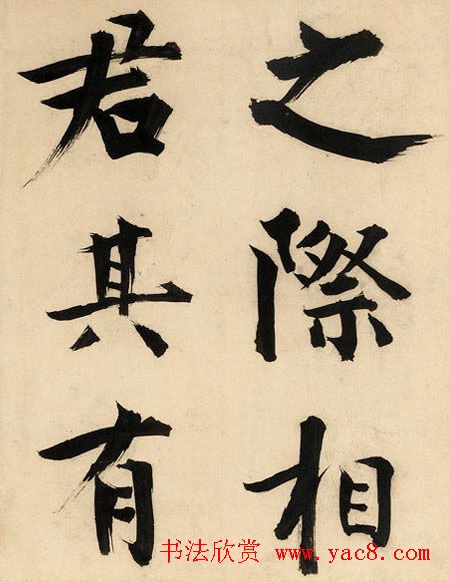 之際相
君其有
书法欣赏 www.yac8.com